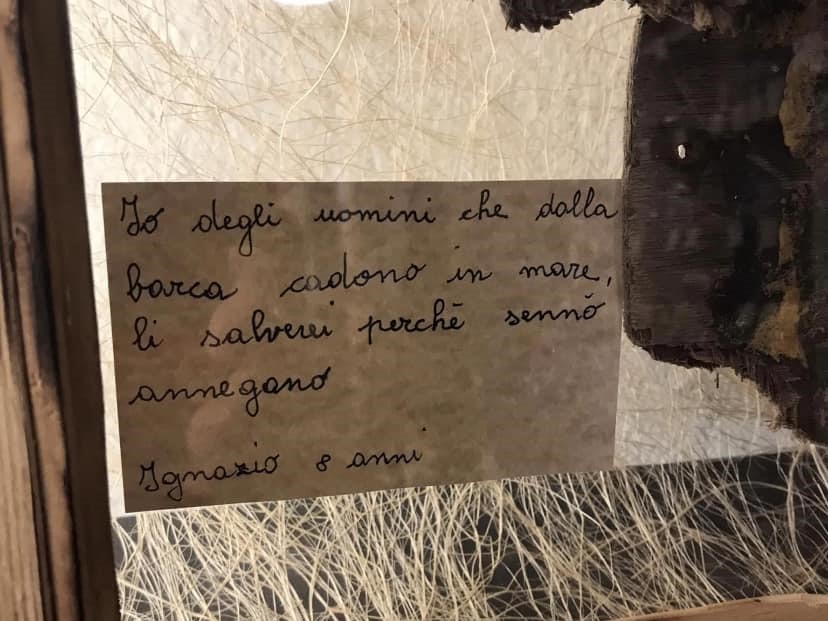 Io degli uomini che dalla
barca cadono in mare,
li salverei perchè sennò
annegano
Ignazio 8 anni